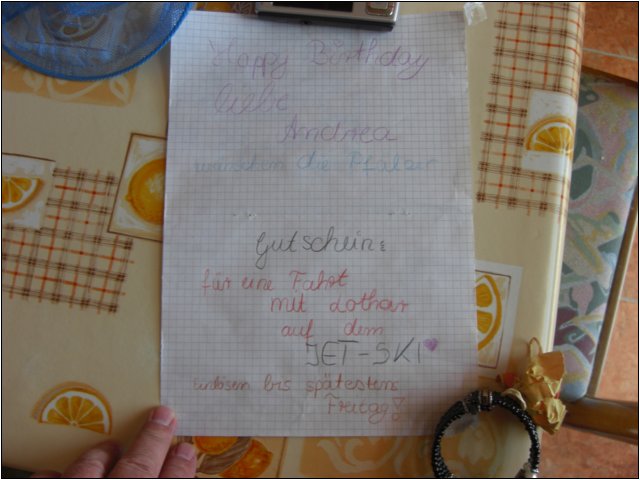 Happy Birthday
liebe
Andrea
wünschen die Pfälzer
Gutschein:
für eine Fahrt
mit Lothar
auf dem
JET-SKI
einlösen bis spätestens
Freitag!